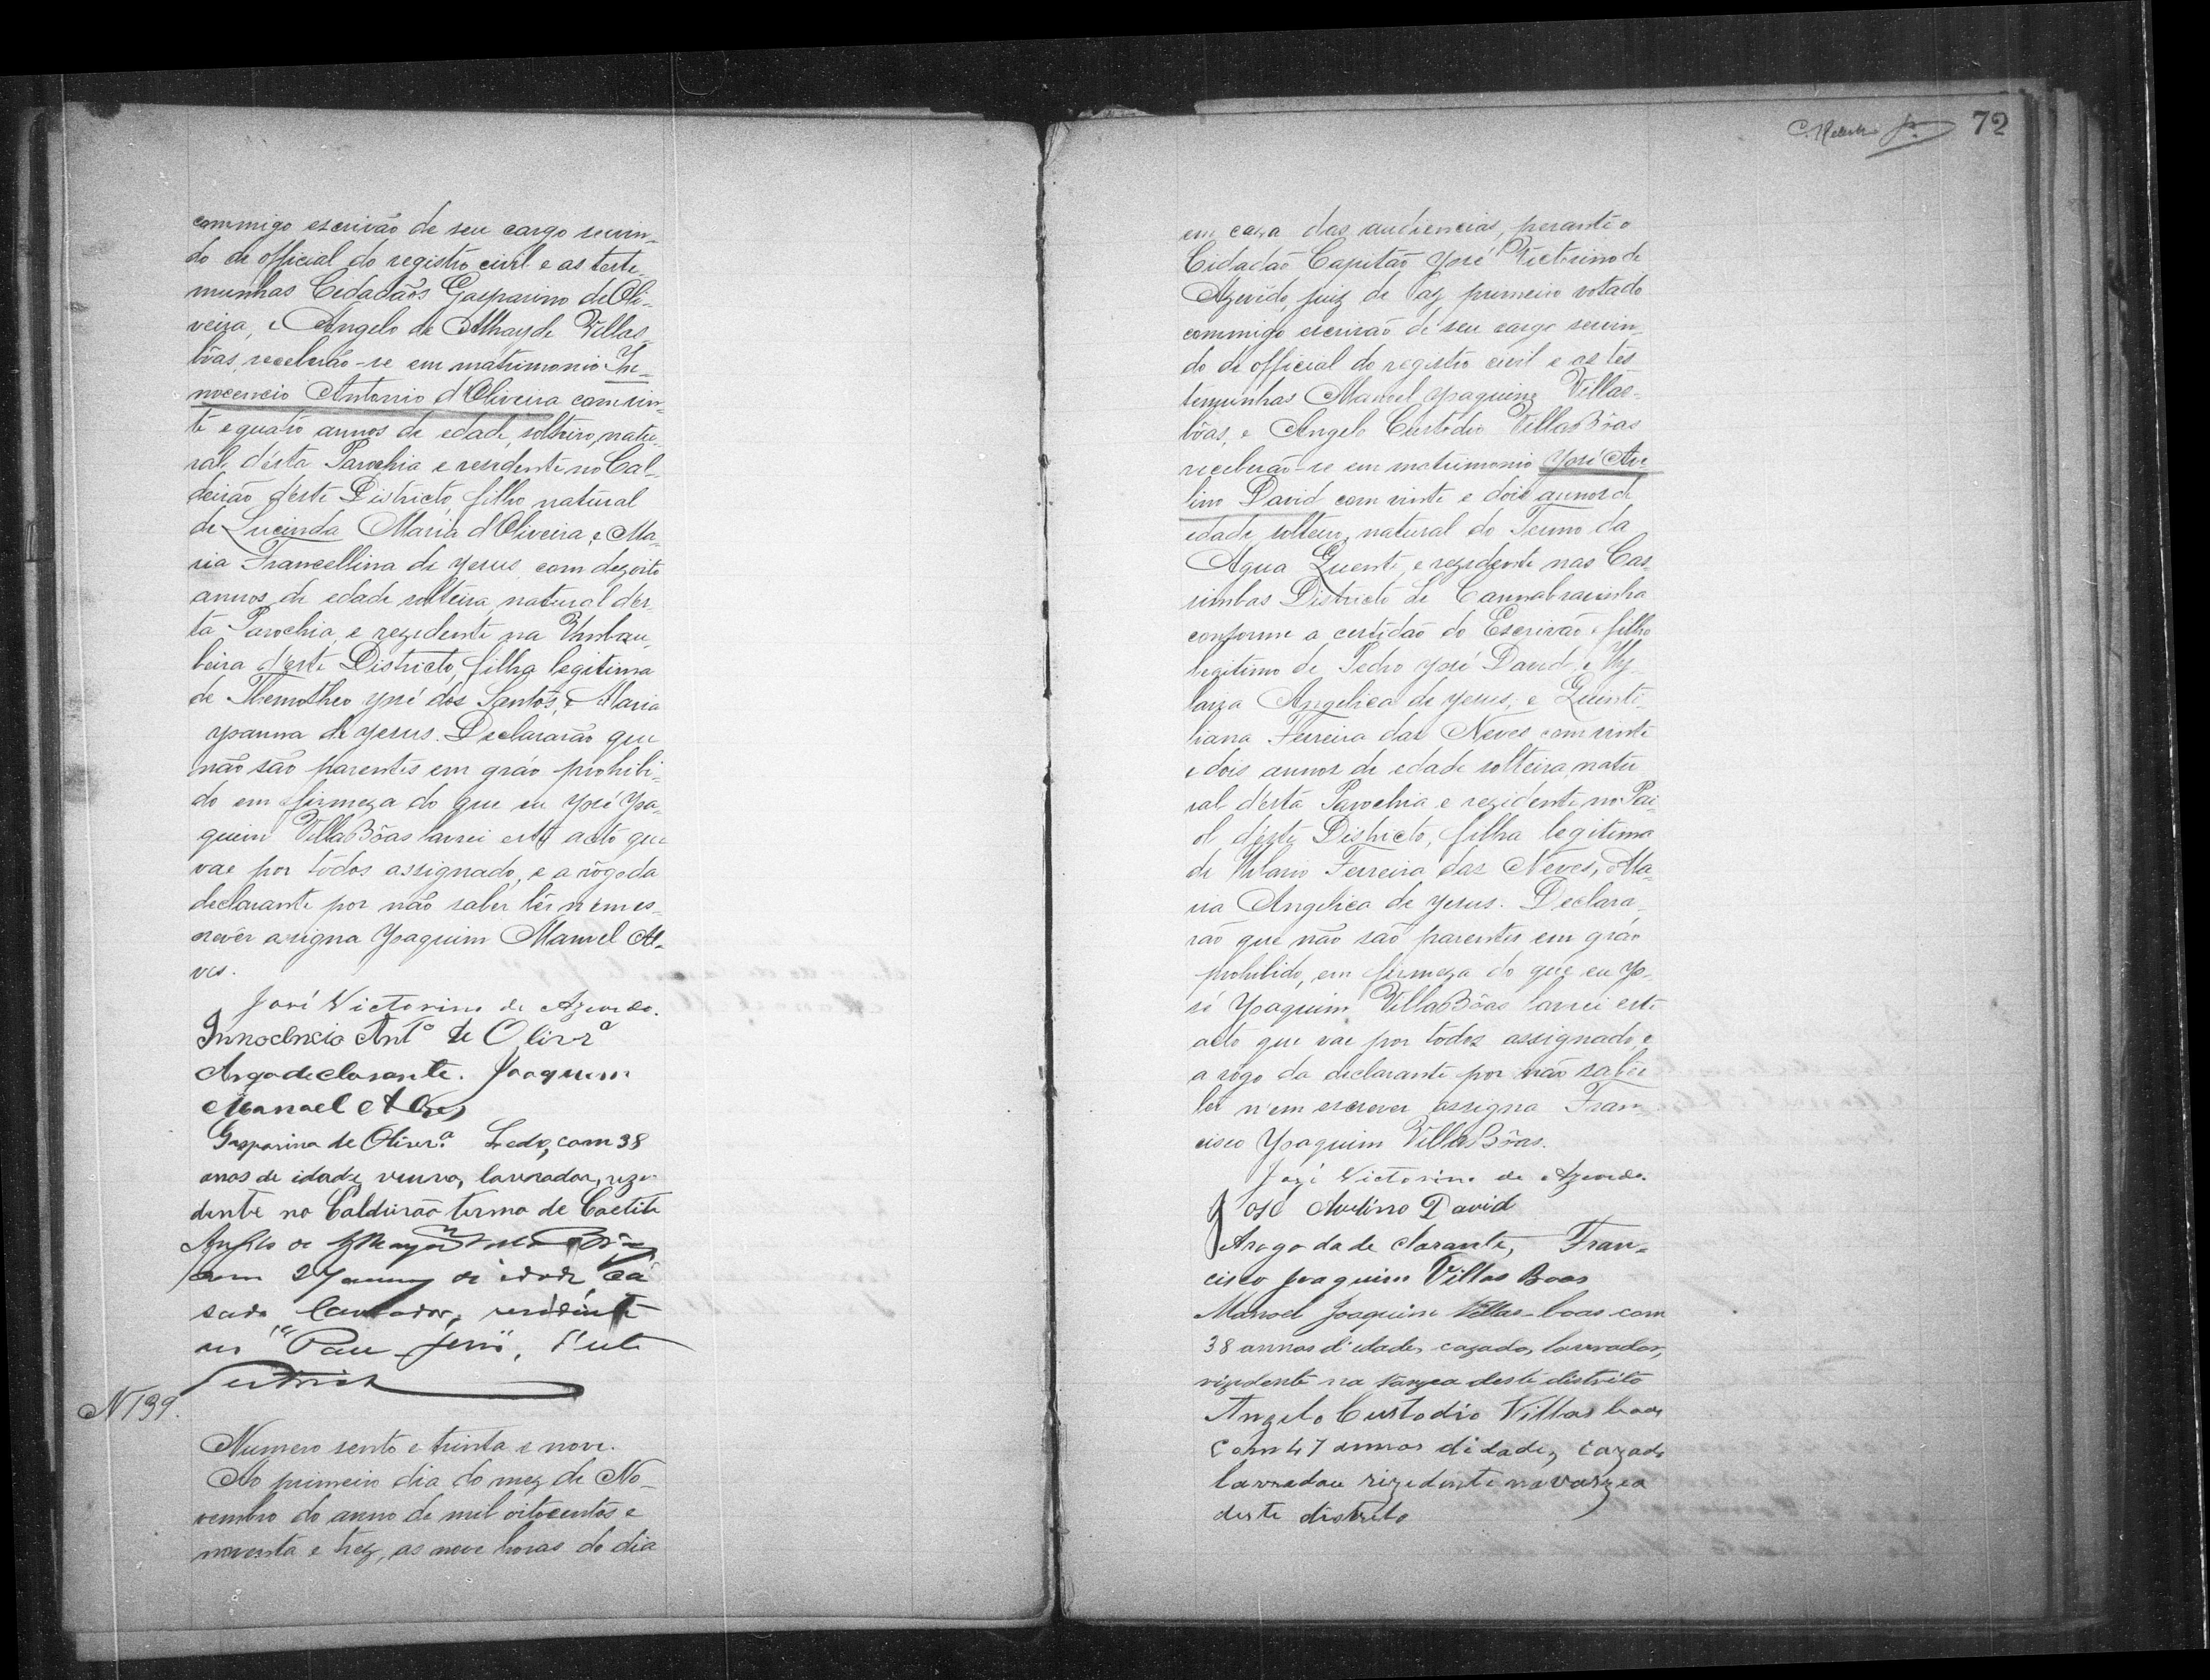 commigo escrivão de seu cargo servin-
do de official do registro civil e as teste-
munhas Cidadãos Gasparino de Oli-
veira, e Angelo de Athayde Villas-
bôas, receberão-se em matrimonio In-
nocencio Antonio d'Oliveira com vin-
te e quatro annos de edade, solteiro, natu-
ral d'esta Parochia e residente no Cal-
deirão d'este Districto, filho natural
de Lucinda Maria d'Oliveira, e Ma-
ria Francellina de Jesus com dezoito
annos de edade solteira, natural d'es-
ta Parochia, e rezidente na Umbau-
beira d'este Districto, filha legitima
de Themotheo José dos Santos, e Maria
Joanna de Jesus. Declararão que
não são parentes em gráo prohibi-
do em firmeza do que eu José Joa-
quim VillaBôas lavrei este acto que
vae por tôdos assignado, e a rôgo da
declarante por não saber lêr nem es-
crever assigna Joaquim Manoel Al-
ves.
José Victorino de Azevedo.
Innocencio Antº de Olivrª
Arogo declarante. Joaquim
Manoel Alves
Gasparino de Oliverª Ledo, com 38
anos de idade, viuvo, lavrador, reze-
dente no Caldeirão termo de Caetite
Angelo de Athayde
com 27 annos de idade, ca
sado lavrador, residente
no "Pau-ferro", d'este
Districto
N 139.
Numero sento e trinta e nove.
Ao primeiro dia do mez de No-
vembro do anno de mil oitocentos e
noventa e trez, as nove horas do dia
72
em caza das audiencias, perante o
Cidadão Capitão José Victorino de
Azevêdo, juiz de Paz primeiro votado
commigo escrivão de seu cargo servin-
do de official do registro civil e as tes
temunhas Manoel Joaquim Villas-
bôas, e Angelo Custodio VillasBôas
receberão-se em matrimonio José Ave
lino David com vinte e dois annos de
edade, solteiro, natural do Termo da
Agua Quente, e rezidente nas Cas-
simbas Districto de Cannabravinha
conforme a certidão do Escrivão e filho
legitimo de Pedro José David, e Hy-
laria Angelica de Jesus, e Quinti-
liana Ferreira das Neves com vinte
e dois annos de edade solteira, natu
ral d'esta Parochia e rezidente no Pai-
ol d'este Districto, filha legitima
de Hilario Ferreira das Neves, e Ma-
ria Angelica de Jesus. Declara-
rão que não são parentes em gráo
prohibido, em firmeza do que eu Jo-
sé Joaquim VillaBôas lavrei este
acto que vae por tôdos assignado, e
a rogo da declarante por não sabêr
ler n'em escrever assigna Fran-
cisco Joaquim VillasBôas.
José Victorino de Azevedo.
José Avelino David
Arogo da de clarante, Fran-
cisco Joaquim Villas Boas
Manoel Joaquim Villas-boas com
38 annos d'idade, cazado, lavrador,
rizedente na varzea deste distrito
Angelo Custodio Villas boas
Com 47 annos didade, cazado
lavradou rizedente na varzea
deste distrito